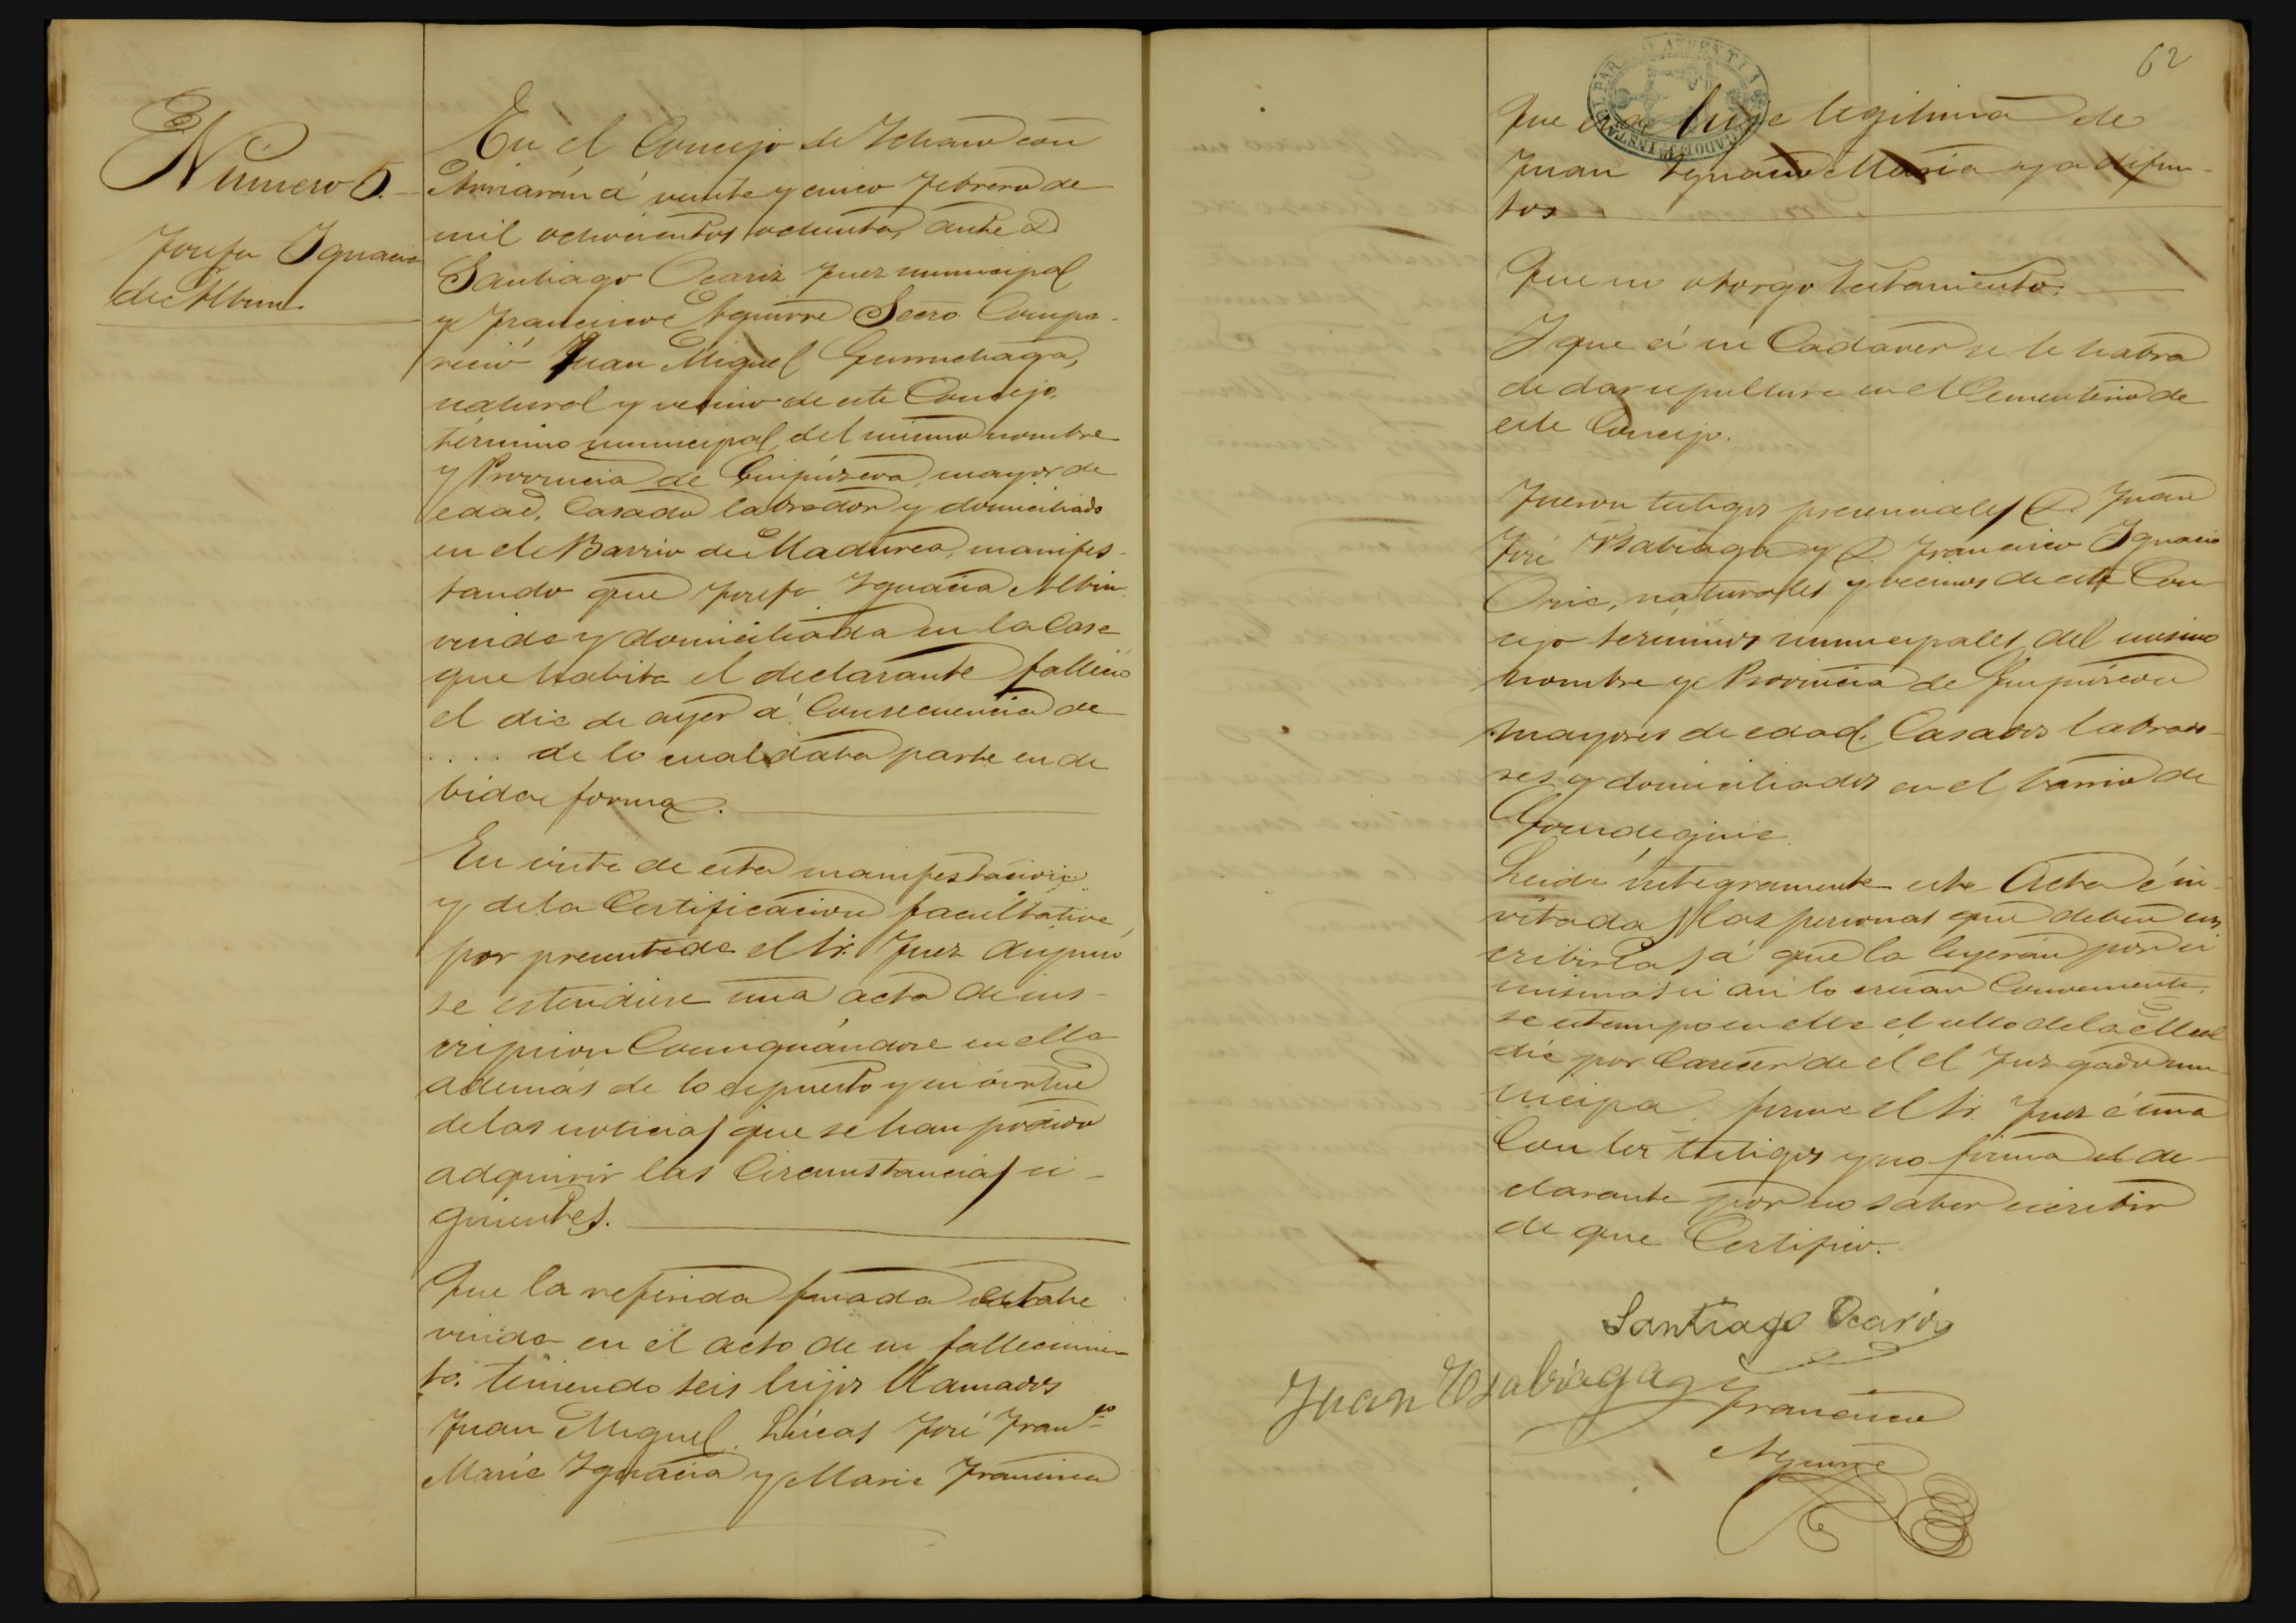 Número 5.
Josefa Ignacia
de Albin.
En el Concejo de Ichaso con
Arriarán á veinte y cinco Febrero de
mil ochocientos ochenta, ante D.
Santiago Ocariz Juez municipal
y Francisco Aguirre Secro. Compa-
reció Juan Miguel Gurruchaga,
natural y vecino de este Concejo,
término municipal del mismo nombre
y Provincia de Guipúzcoa, mayor de
edad, Casado labrador y domiciliado
en el Barrio de Madurea, manifes-
tando que Josefa Ignacia Albin
viuda y domiciliada en la Casa
que habita el declarante falleció
el dia de ayer á Consecuencia de
.... de lo cual daba parte en de
bida forma.
En vista de esta manifestación
y de la Certificacion facultativa
por presentada el Sr. Juez dispuso
se estendiese una acta de ins-
cripcion Consignándose en ella
además de lo espuesto y en virtud
de las noticias que se han podido
adquirir las Circunstancias si-
guientes.
Que la referida finada estaba
viuda en el acto de su fallecimien-
to. teniendo seis hijos llamados
Juan Miguel, Lúcas José Fran.co
Maria Ignacia y Maria Francisca
62
Que era hija legitima de
Juan Ignacio Maria ya difun-
tos
Que no otorgo testamento.
Y que á su Cadaver se le habra
de dar sepultura en el Cementerio de
este Concejo.
Fueron testigos presenciales D. Juan
José Usabiaga y D. Francisco Ignacio
Oria, naturales y vecinos de este Con
cejo terminos municipales del mismo
nombre y Provincia de Guipúzcoa
mayores de edad, Casados labrado-
res y domiciliados en el barrio de
Leida integramente esta Acta é in-
vitadas las personas que deben sus
cribirla, á que la leyeran por si
mismas si asi lo creian Conveniente,
se estampo en ella el sello de la Alcal
dia por Carecer de él el Juzgado mu-
nicipal, firma el Sr. Juez é una
Con los testigos y no firma el de-
clarante por no saber escribir
de que Certifico.
Santiago Ocariz
Juan Usabiaga
Francisco
Aguirre